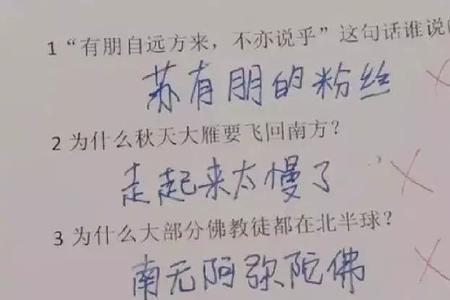 1 “有朋自远方来，不亦说乎”这句话谁说
苏有朋的粉丝
2 为什么秋天大雁要飞回南方？
走起来太慢了
3 为什么大部分佛教徒都在北半球？
南无阿弥陀佛